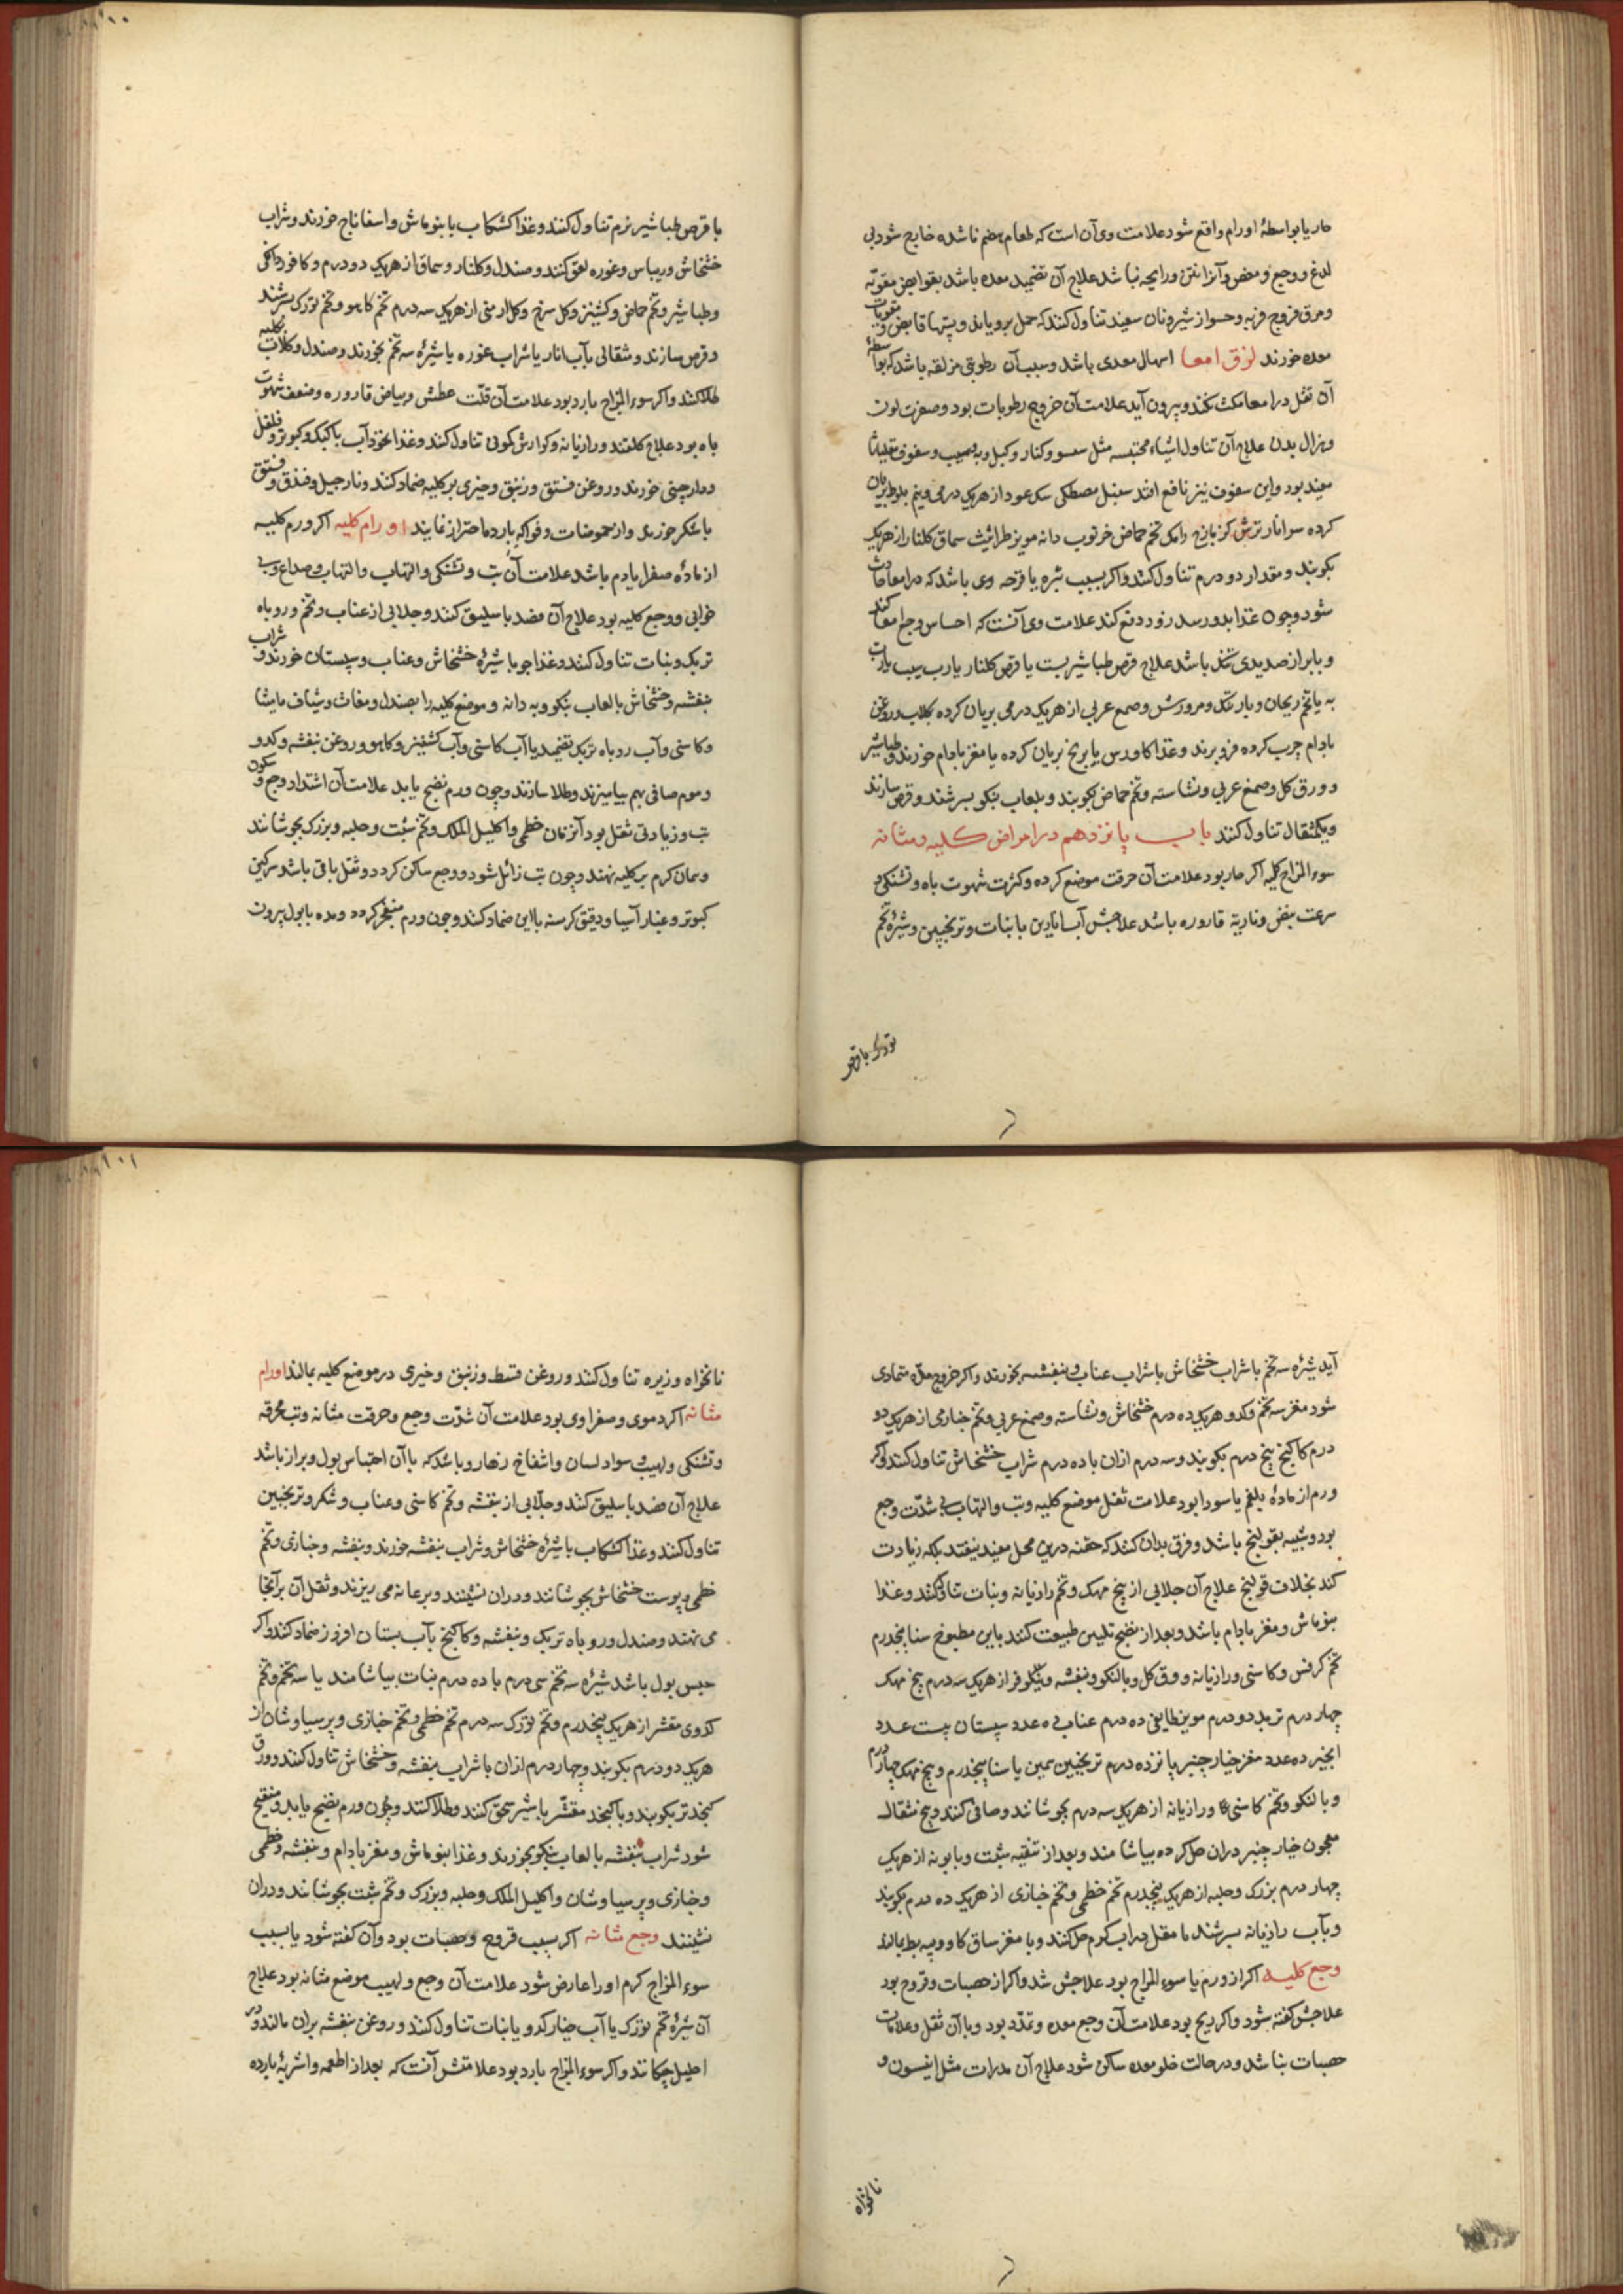 حار یا بواسطهٔ اورام واقع شود علامت وی آن است که طعام هضم ناشده خارج شود بی
لدغ و وجع و مغص و آنرا نتن و رایحه نباشد علاج آن تضمید معده باشد بقوابض مقویّه
و عرق فروج فربه و حسو از شیر و نان سفید تناول کنند که حمل برویاند و پستها قابض و مقویات
معده خورند لزق امعا اسهال معدی باشد و سبب آن رطوبتی مزلقه باشد که بواسطهٔ
آن ثقل در امعا مکث نکند و بیرون آید علامت آن خروج رطوبات بود و صفرت لون
و هزال بدن علاج آن تناول اشیاء محتبسه مثل و کنار و و سفوف مقلیاثا
مفید بود و این سفوف نیز نافع افتد سنبل مصطکی سک عود از هریک درمی و نیم بلوط بریان
کرده سر انار ترش کزمازج رامک تخم حماض خرنوب دانه مویز طراثیث سماق کلنار از هریک
بکوبند و مقدار دو درم تناول کنند و اکر بسبب بثره یا قرحه وی باشد که در امعا حادث
شود و چون غذا بدو رسد زود دفع کند علامت وی آنست که احساس وجع امعا کند
و با براز صدیدی باشد علاج قرص طباشیر بست یا قرص کلنار یا رب سیب یا رب
به یا تخم ریحان و بارتنک و مرورشس و صمغ عربی از هریک درمی بریان کرده بکلاب و روغن
بادام چرب کرده فرو برند و غذا کاورس یا برنج بریان کرده با مغز بادام خورند و طباشیر
و ورق کل و صمغ عربی و نشاسته و تخم حماض بکوبند و بلعاب بنکو بسرشند و قرص سازند
و یکمثقال تناول کنند باب پانزدهم در امراض کلیه و مثانه
سوء المزاج کلیه اکر حار بود علامت آن حرقت موضع کرده و کثرت شهوت باه و تشنکی و
سرعت نبض و ناریة قاروره باشد علاجش آب انارین با نبات و ترنجبین و شیرهٔ تخم
تورک با قرص
با قرص طباشیر نرم تناول کنند و غذا کشکاب با بنوماش و اسفاناج خورند و شراب
خشخاش و ریباس و غوره لعق کنند و صندل و کلنار و سماق از هریک دو درم و کافور دانکی
و طباشیر و تخم حماض و کشنیز و کل سرخ و کل ارمنی از هریک سه درم تخم کاهو و تخم تورک بسرشند
و قرص سازند و مثقالی بآب انار یا شراب غوره یا شیرهٔ سه تخم بخورند و صندل و کلاب بکلیه
طلا کنند و اکر سوء المزاج بارد بود علامت آن قلّت عطش و بیاض قاروره و ضعف شهوت
باه بود علاج کلقند و رازیانه و کوارش کمونی تناول کنند و غذا نخودآب با کبک و کبوتر و فلفل
و دارچینی خورند و روغن فستق و زنبق و خیری بر کلیه ضماد کنند و نارجیل و فندق و فستق
با شکر خورند و از حموضات و فواکه بارد احتراز نمایند اورام کلیه اکر ورم کلیه
از مادّه صفرا یا دم باشد علامت آن تب و تشنکی و التهاب و التهاب و صداع و بی
خوابی و وجع کلیه بود علاج آن فصد باسلیق کنند و جلابی از عناب و تخم و روباه
تربک و نبات تناول کنند و غذا جو با شیرهٔ خشخاش و عناب و سپستان خورند و شراب
بنفشه و خشخاش با لعاب بنکو و به دانه و موضع کلیه را بصندل و مغاث و شیاف مامیثا
و کاسنی و آب روباه تربک تضمید یا آب کاسنی و آب کشنیز و کاهو و روغن بنفشه و کدو
و موم صافی بهم بیامیزند و طلا سازند و چون ورم نضج یابد علامت آن اشتداد وجع و سکون
تب و زیادتی ثقل بود آنزمان خطمی و اکلیل الملک و تخم شبت و حلبه و بزرک بجوشانند
و همان کرم بر کلیه نهند و چون تب زائل شود و وجع ساکن کردد و ثقل باقی باشد سرکین
کبوتر و غبار آسیا و دقیق کرسنه با این ضماد کنند و چون ورم منفجر کردد و مده با بول بیرون
آید شیرهٔ سه تخم با شراب خشخاش یا شراب عناب و بنفشه بخورند و اکر خروج مدّه متمادی
شود مغز سه تخم و کدو هریک ده درم خشخاش و نشاسته و صمغ عربی و تخم خبازی از هریک دو
درم کاکنج پنج درم بکوبند و سه درم از ان با ده درم شراب خشخاش تناول کنند و اکر
ورم از مادهٔ بلغم یا سودا بود علامت ثقل موضع کلیه و تب و التهاب بی شدّت وجع
بود و شبیه بقولنج باشد و فرق بدان کنند که حقنه درین محل مفید نیفتد بلکه زیادت
کند بخلاف قولنج علاج آن جلابی از بیخ مهک و تخم رازیانه و نبات تناول کنند و غذا
بنوماش و مغز بادام باشد و بعد از نضج تلیین طبیعت کنند باین مطبوخ سنا پنجدرم
تخم کرفس و کاسنی و رازیانه و ورق کل و بالنکو و بنفشه و نیلوفر از هریک سه درم بیخ مهک
چهار درم تربد دو درم مویز طایفی ده درم عناب ده عدد سپستان بیست عدد
انجیر ده عدد مغز خیارچنبر پانزده درم ترنجبین همین یا سنا پنجدرم و بیخ مهک چهار درم
و بالنکو و تخم کاسنی و رازیانه از هریک سه درم بجوشانند و صافی کنند و پنج مثقال
معجون خیارچنبر در ان حل کرده بیاشامند و بعد از تنقیه شبت و بابونه از هریک
چهار درم بزرک و حلبه از هریک پنجدرم تخم خطمی و تخم خبازی از هریک ده درم بکوبند
و بآب رازیانه بسرشند یا مقل در اب کرم حل کنند و با مغز ساق کاو و پیه بط بمالند
وجع کلیه اکر از ورم یا سوء المزاج بود علاجش شد و اکر از حصبات و قروح بود
علاجش کفته شود و اکر ریح بود علامت آن وجع معده و تمدّد بود و با آن ثقل و علامات
حصبات نباشد و در حالت خلو معده ساکن شود علاج آن مدرات مثل انیسون و
نانخواه
نانخواه و زیره تناول کنند و روغن قسط و زنبق و خیری در موضع کلیه بمالند اورام
مثانه اکر دموی و صفراوی بود علامت آن شدّت وجع و حرقت مثانه و تب محرقه
و تشنکی و لهیب و سواد لسان و انتفاخ زهار و باشد که با آن احتباس بول و براز باشد
علاج آن فصد باسلیق کنند و جلّابی از بنفشه و تخم کاسنی و عناب و شکر و ترنجبین
تناول کنند و غذا کشکاب با شیرهٔ خشخاش و شراب بنفشه خورند و بنفشه و خبازی و تخم
خطمی و پوست خشخاش بجوشانند و در ان نشینند و بر عانه می ریزند و ثقل آن بر آنجا
می نهند و صندل و روباه تربک و بنفشه و کاکنج بآب بستان افروز ضماد کنند و اکر
حبس بول باشد شیرهٔ سه تخم سی درم با ده درم نبات بیاشامند یا سه تخم و تخم
کدوی مقشر از هریک پنجدرم و تخم تورک سه درم تخم خطمی و تخم خبازی و پرسیاوشان از
هریک دو درم بکوبند و چهار درم از ان با شراب بنفشه و خشخاش تناول کنند و ورق
کنجد تر بکوبند و با کنجد مقشّر با شیر سحق کنند و طلا کنند و چون ورم نضج یابد و منفتح
شود شراب بنفشه با لعاب بنکو بخورند و غذا بنوماش و مغز بادام و بنفشه و خطمی
و خبازی و پرسیاوشان و اکلیل الملک و حلبه و بزرک و تخم شبت بجوشانند و در ان
نشینند وجع مثانه اکر بسبب قروح و حصبات بود و آن کفته شود یا بسبب
سوء المزاج کرم او را عارض شود علامت آن وجع و لهیب موضع مثانه بود علاج
آن شیرهٔ تخم تورک یا آب خیار کدو یا نبات تناول کنند و روغن بنفشه بران مالند و در
احلیل چکانند و اکر سوء المزاج بارد بود علامتش آنست که بعد از اطعمه و اشربهٔ بارده